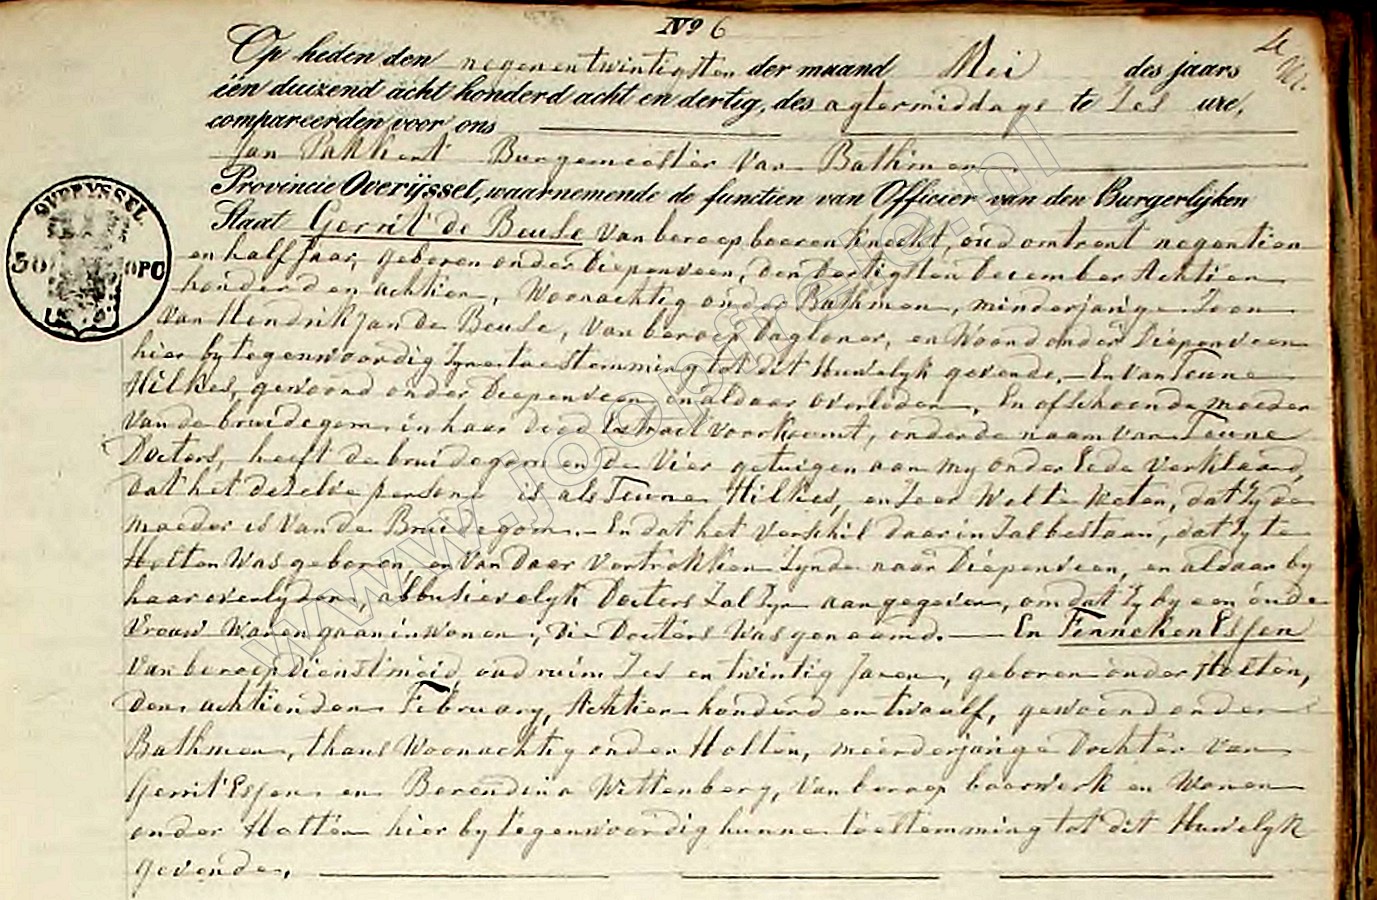 Nº 6
Op heden den negenentwintigsten der maand Mei des jaars
één duizend acht honderd acht en dertig, des agtermiddags te Zes ure,
compareerden voor ons
Jan Pakkert Burgemeester Van Bathmen
Provincie Overijssel, waarnemende de functien van Officier van den Burgerlijken
Staat Gerrit de Beuse Van beroep boerenknecht, oud omtrent negentien
en half Jaar, geboren onder Diepenveen, den dertigsten December Achtien
honderd en achtien, Woonachtig onder Bathmen, minderjarige Zoon
Van Hendrik Jan de Beuse, Van beroep dagloner, en Woond onder Diepenveen
hier by tegenwoordig Zyne toestemming tot dit Huwelyk gevende, En Van Teune
Hilkes, gewoond onder Diepenveen en aldaar overleden, En ofschoon de moeder
Van de bruidegom in haar dood Extract voorkoomt, onder de naam van Teune
Doeters, heeft de bruidegom en de Vier getuigen aan my onder Eede Verklaard,
dat het dezelve persone is als Teune Hilkes, en Zeer Wel te Weten, dat Zy de
moeder is Van de Bruidegom. En dat het Verschil daar in Zal bestaan, dat Zy te
Holten Was geboren, en Van Daar Vertrokken Zynde naar Diepenveen, en aldaar by
haar overlyden, abbusievelyk Doeters Zal Zyn aangegeven, omdat Zy by een oude
Vrouw Waren gaan inwonen, Die Doeters Was genoemd. En Fenneken Essen
Van beroep dienstmeid, oud ruim Zes en twintig Jaren, geboren onder Holten,
den achtienden February, Achtien honderd en twaalf, gewoond onder
Bathmen, thans Woonachtig onder Holten, meerderjarige Dochter Van
Gerrit Essen en Berendina Wittenberg, Van beroep boerwerk en Wonen
onder Holten hier by tegenwoordig hunne toestemming tot dit Huwelyk
gevende,
OVERYSSEL
www.joopfreje.nl